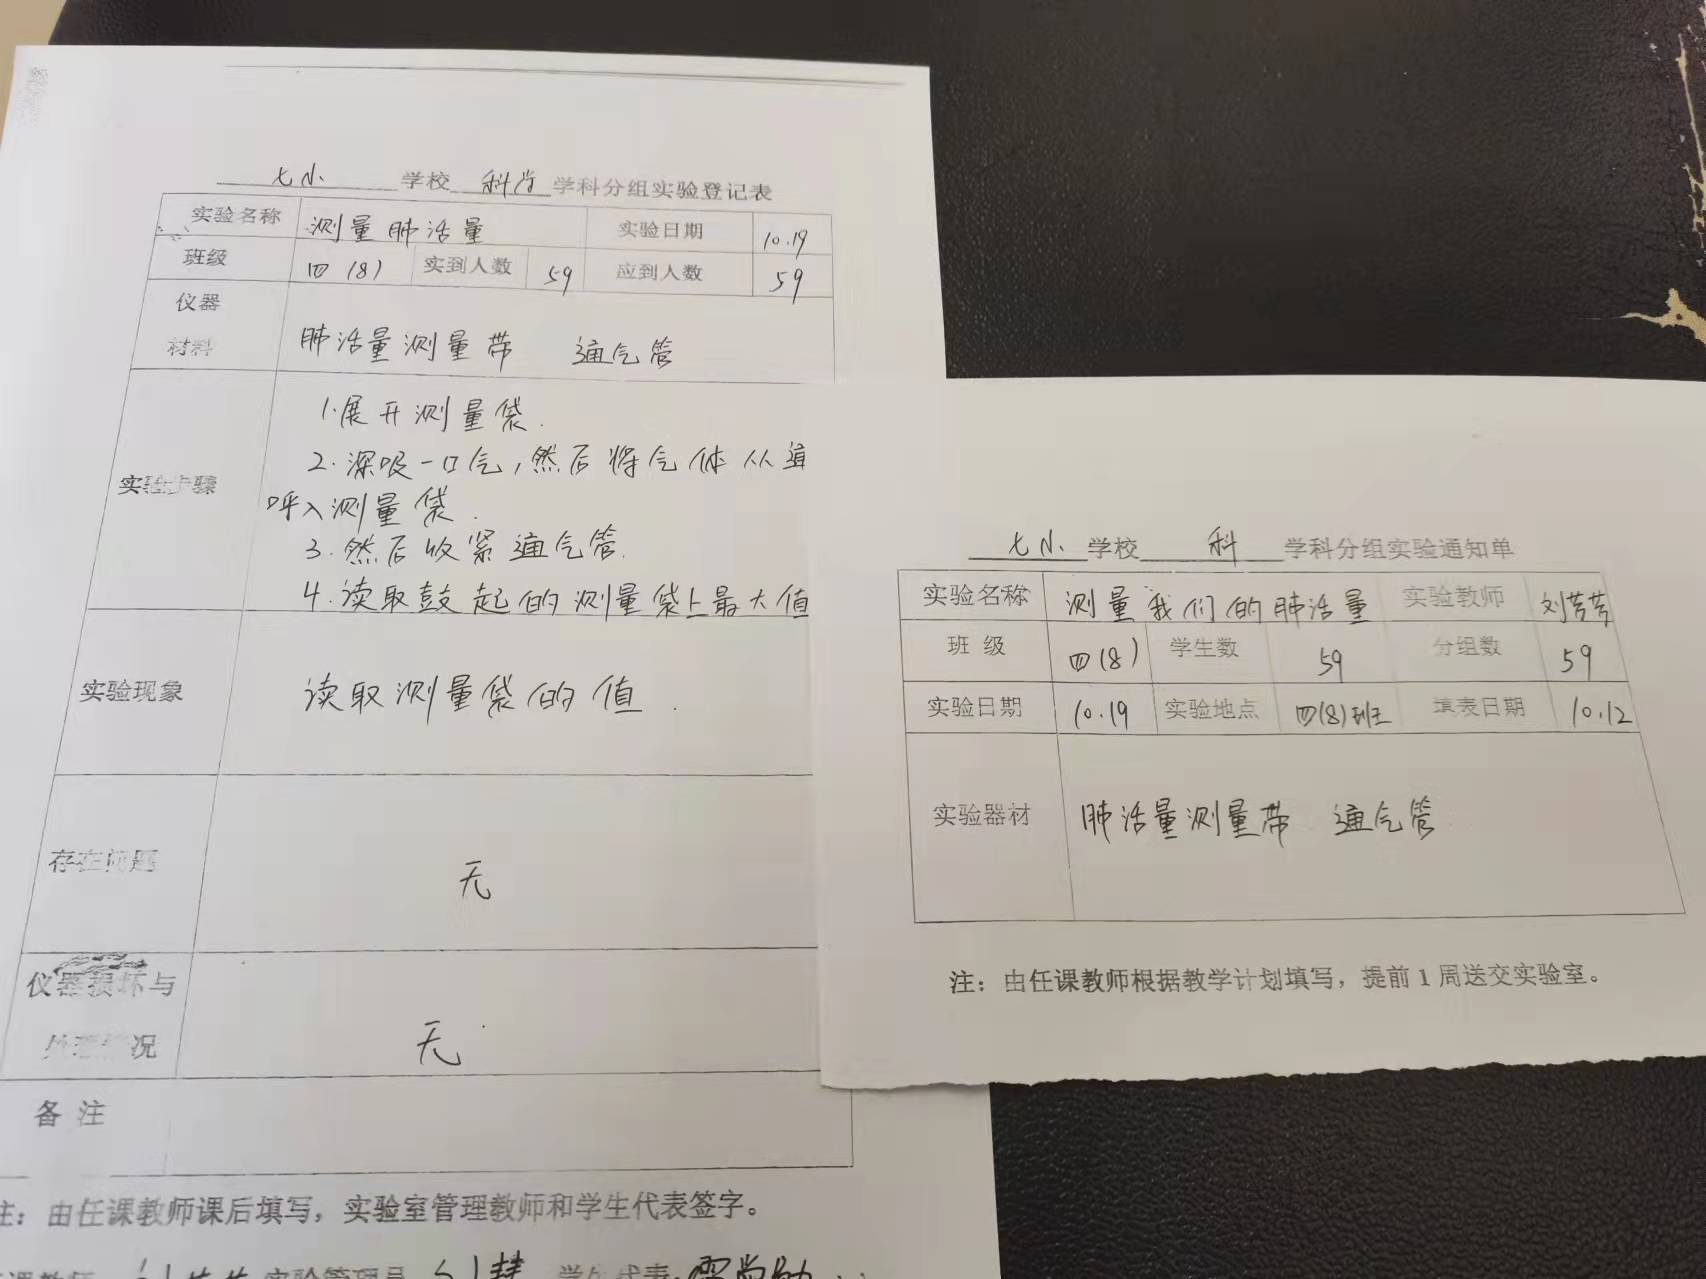 七小 学校 科学 学科分组实验登记表
实验名称 测量肺活量 实验日期 10.19
班级 四(8) 实到人数 59 应到人数 59
仪器
材料 肺活量测量带 通气管
1.展开测量袋.
2.深吸一口气,然后将气体从通
实验步骤
呼入测量袋.
3.然后收紧通气管.
4.读取鼓起的测量袋上最大值
实验现象 读取测量袋的值.
存在问题 无
仪器损坏与
处理情况 无
备 注
注：由任课教师课后填写，实验室管理教师和学生代表签字。
实验管理员 学生代表
七小 学校 科 学科分组实验通知单
实验名称 测量我们的肺活量 实验教师 刘芳芳
班 级 四(8) 学生数 59 分组数 59
实验日期 10.19 实验地点 四(8)班 填表日期 10.12
实验器材 肺活量测量带 通气管
注：由任课教师根据教学计划填写，提前1周送交实验室。